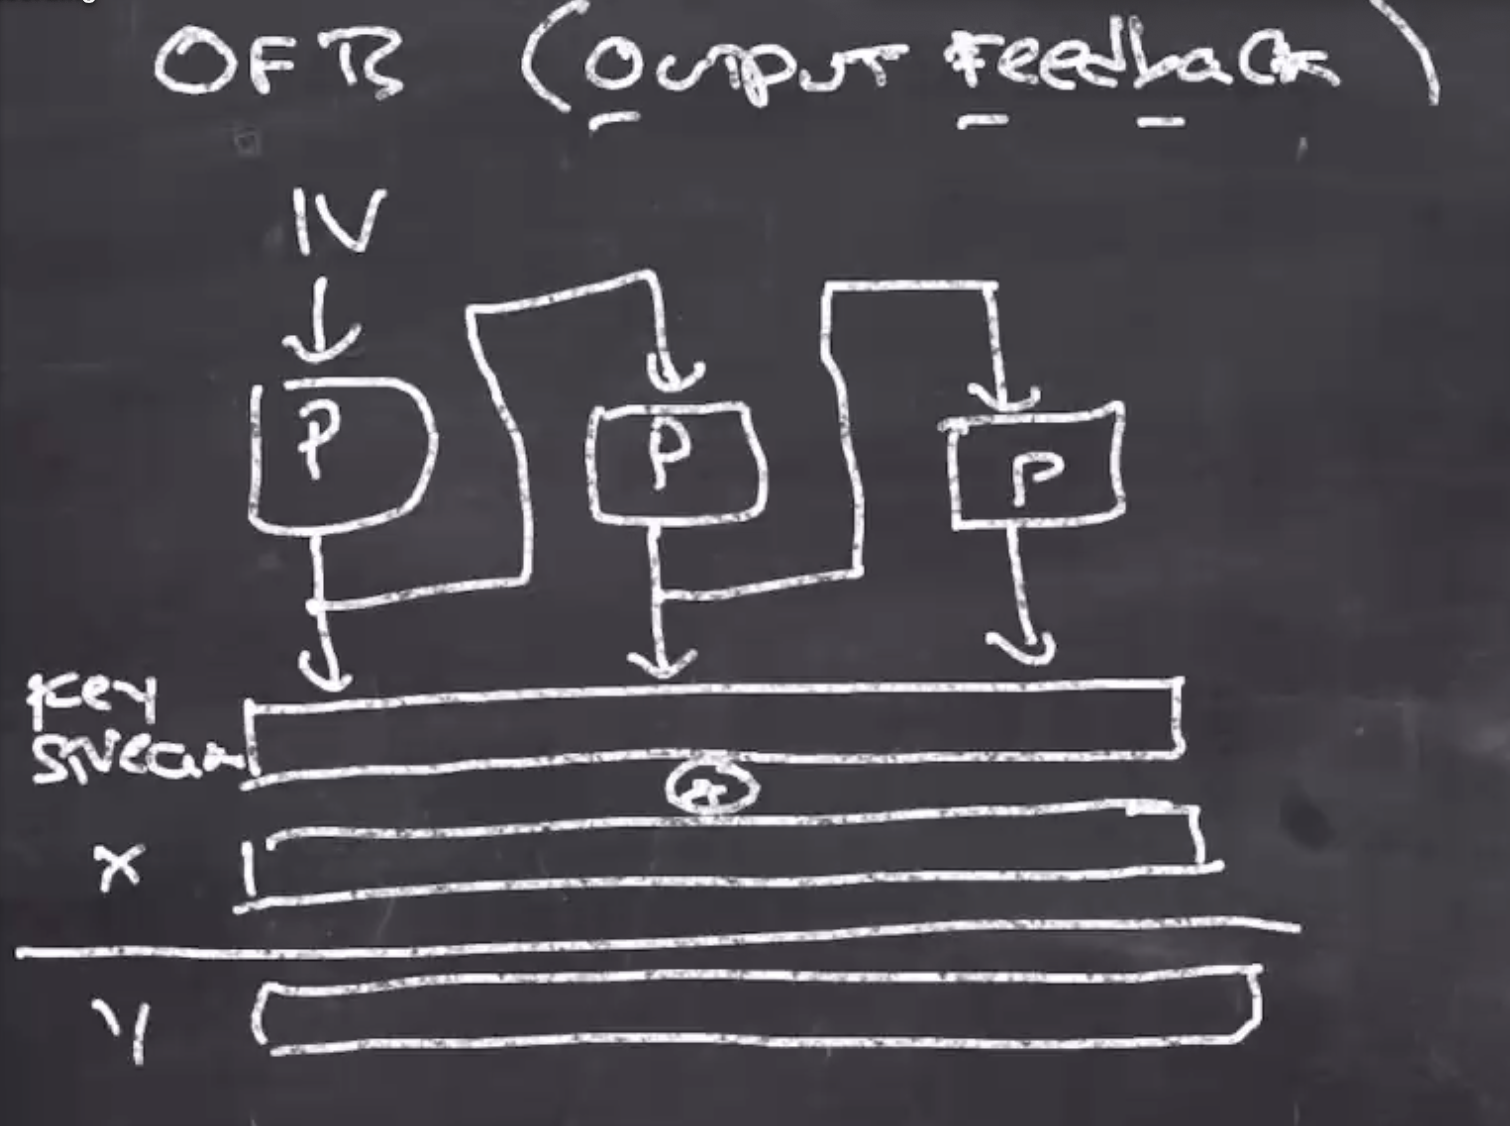 OFB (Output Feedback)
IV
P P P
Key
Stream
X
Y